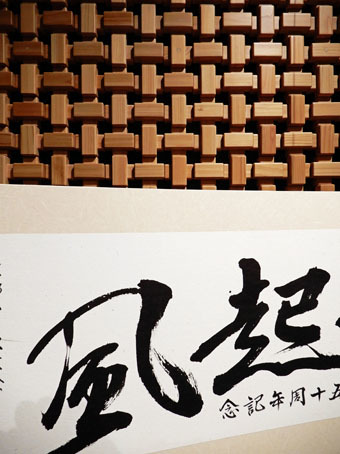 起風
五十周年記念